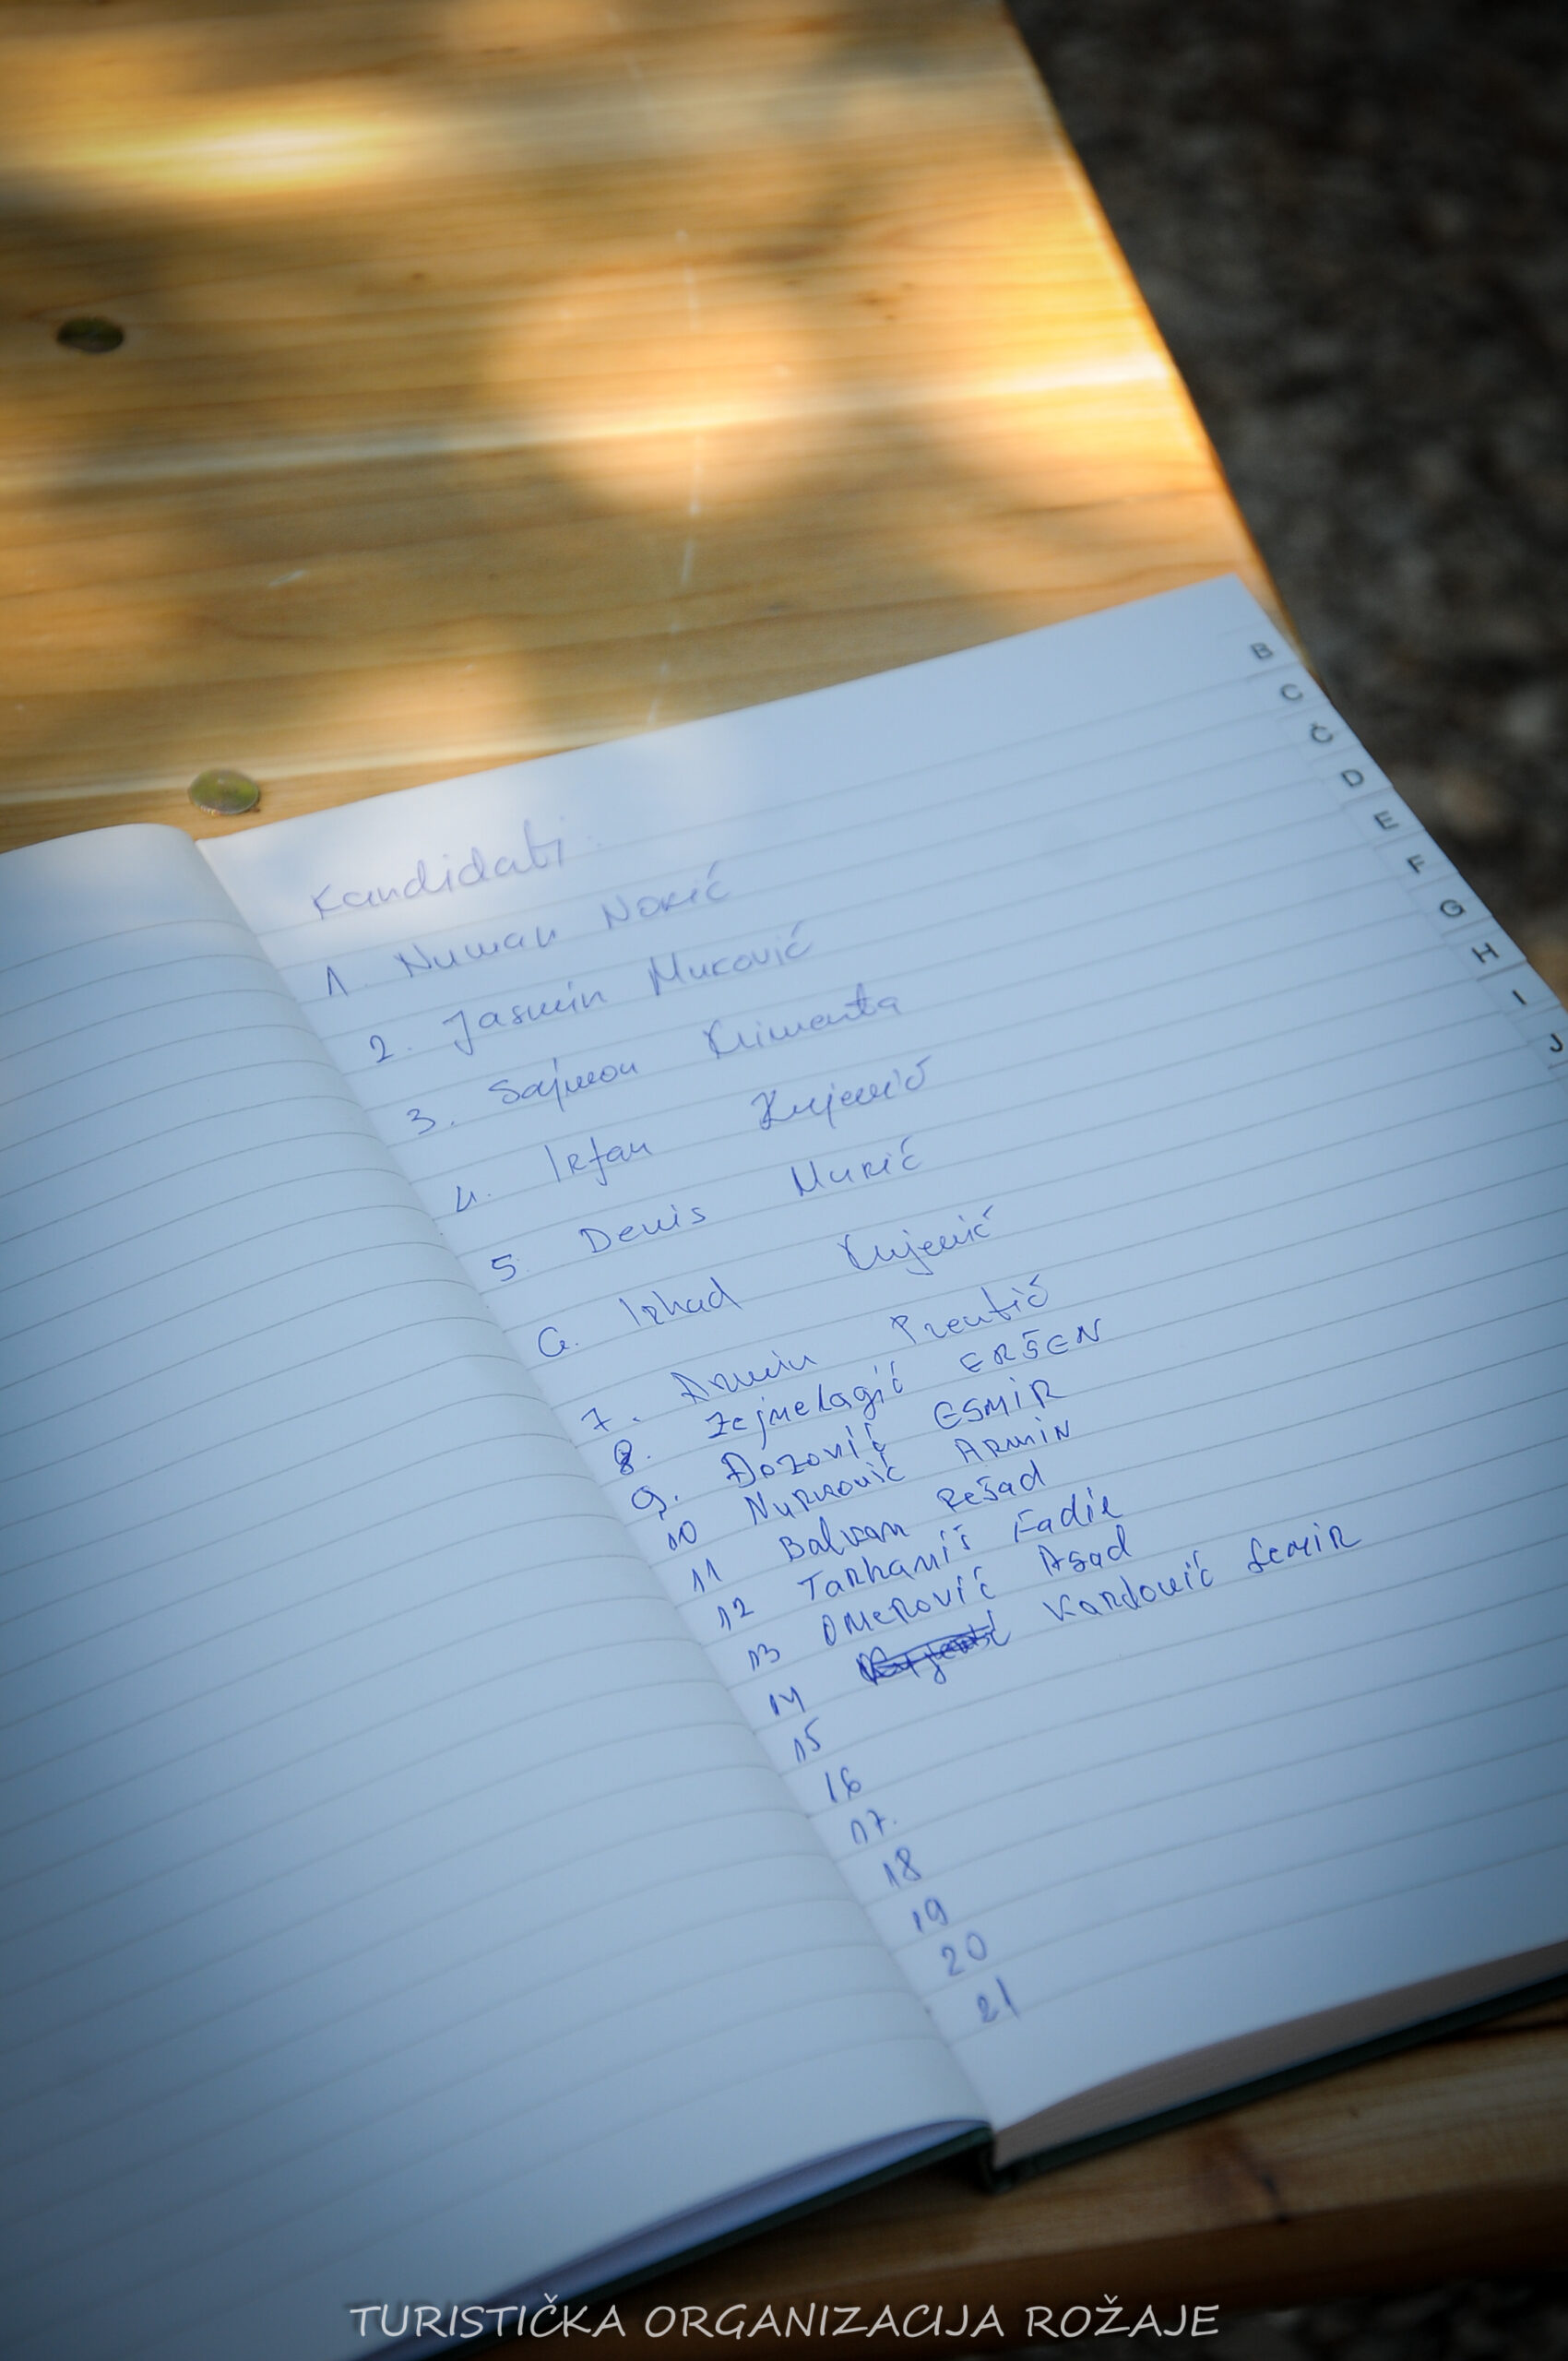 B
C
Č
D
E
F
G
H
I
J
Kandidati:
1. Numan Nokić
2. Jasmin Muković
3. Sajmon Klimenta
4. Irfan Kujević
5. Denis Murić
6. Irhad Kujević
7. Armin Prentić
8. Zejnelagić ERŠEN
9. Đozović ESMIR
10 Nurković ARMIN
11 Balkan Rešad
12 Tarhaniš Fadil
13 OMEROVIĆ Asad
14 Kardović Semir
15
16
17.
18
19
20
21
TURISTIČKA ORGANIZACIJA ROŽAJE